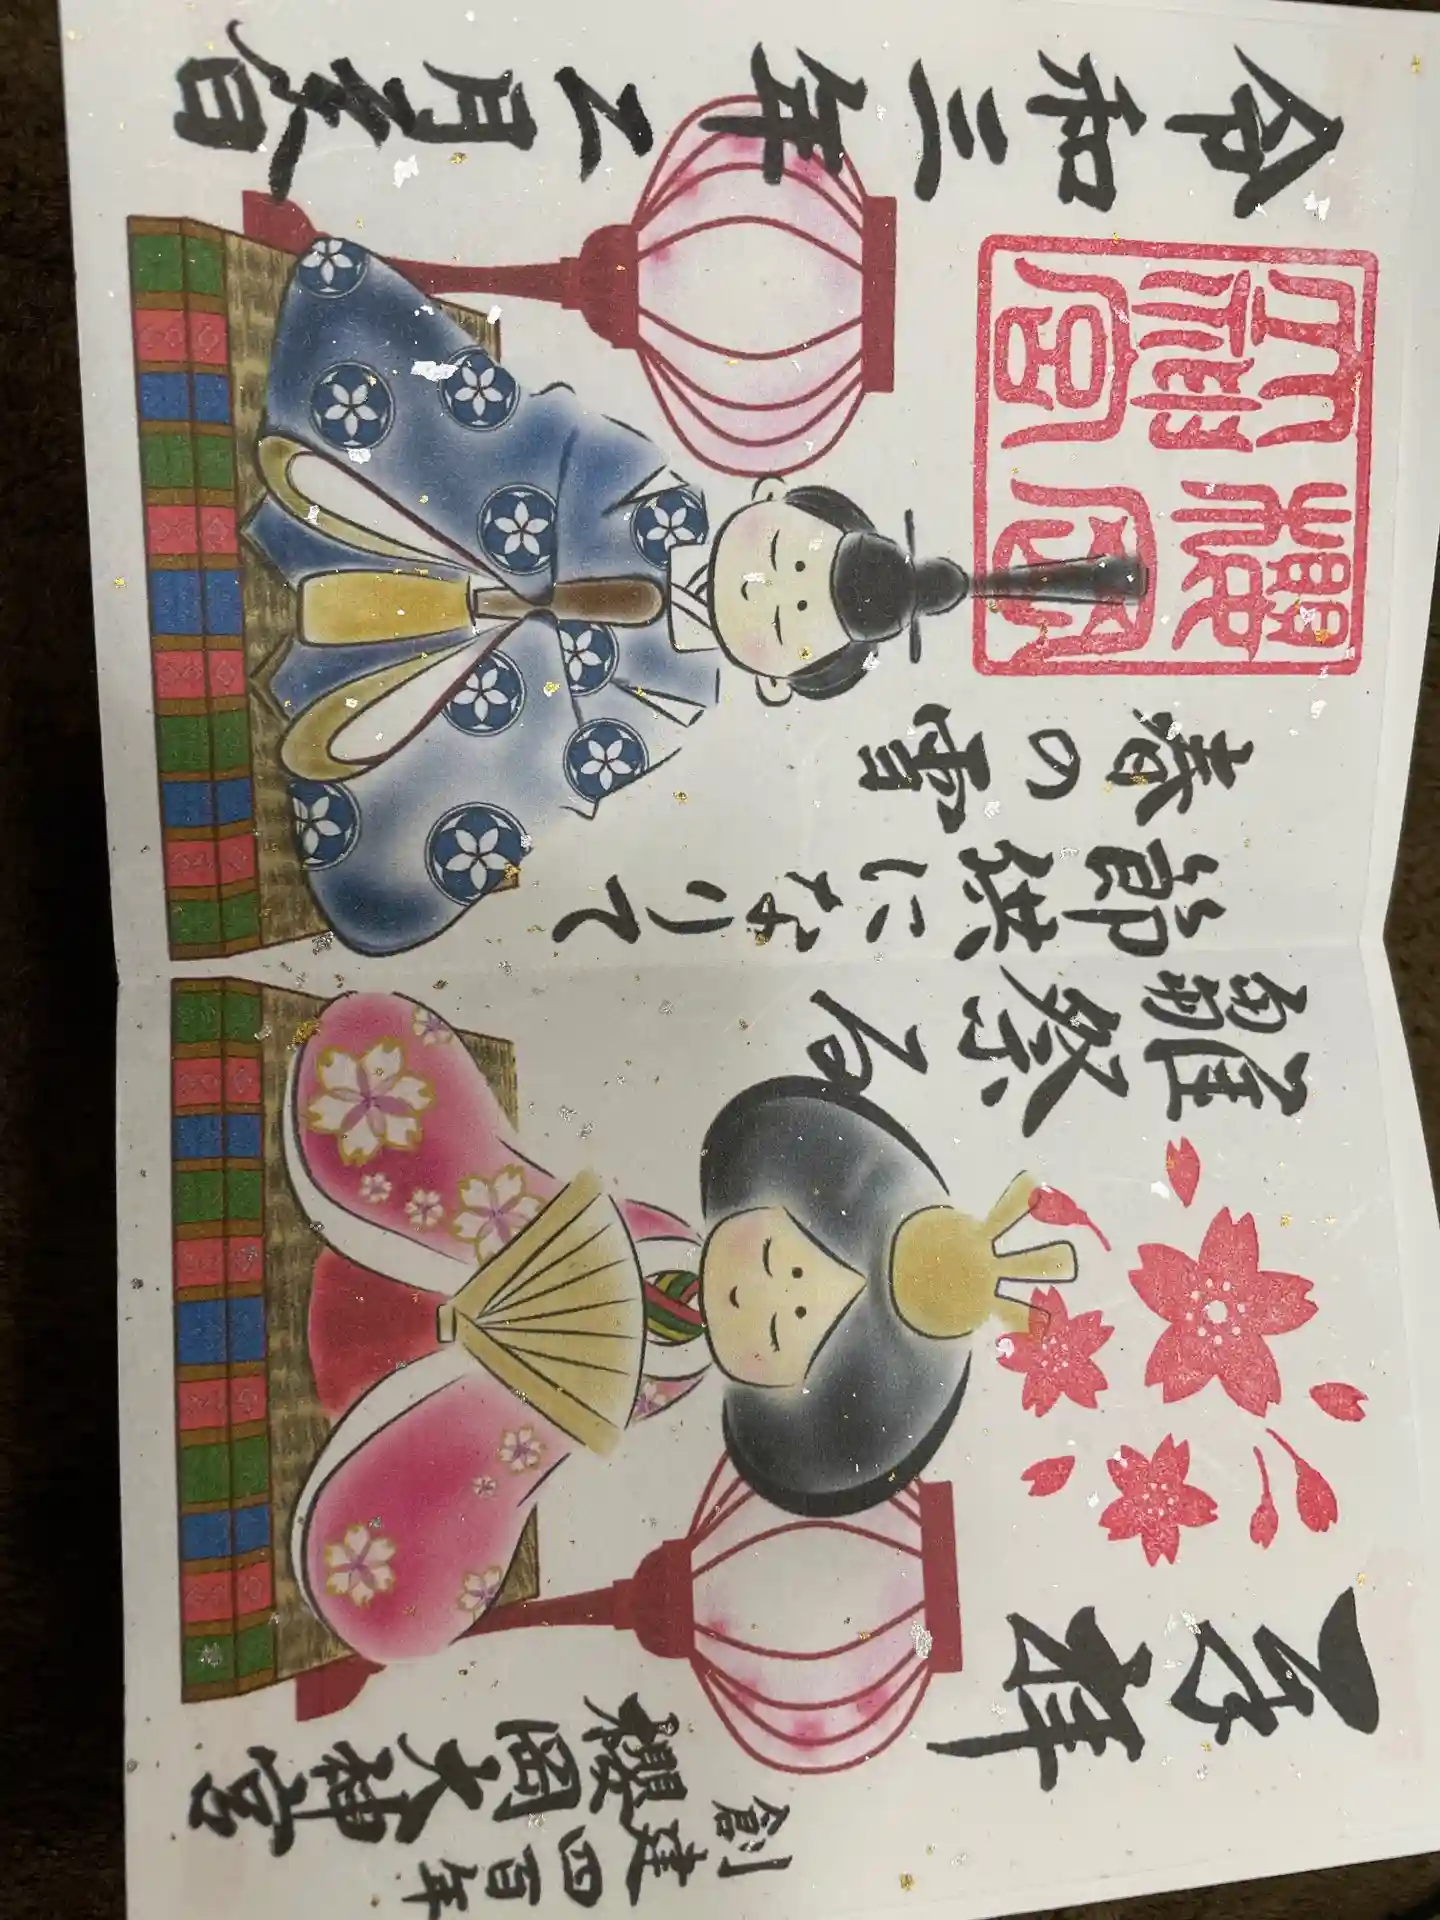 奉拝
創建四百年
櫻岡大神宮
雛祭る
節供になりて
春の雪
櫻岡
大神宮
令和三年二月日